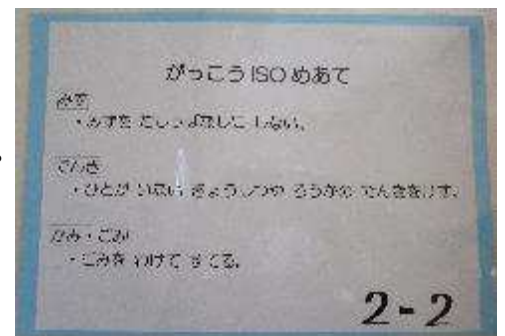 がっこうISOめあて
みず
・みずを だしっぱなしに しない。
でんき
・ひとが いない きょうしつや ろうかの でんきをけす。
かみ・ごみ
・ごみを わけて すてる。
2-2